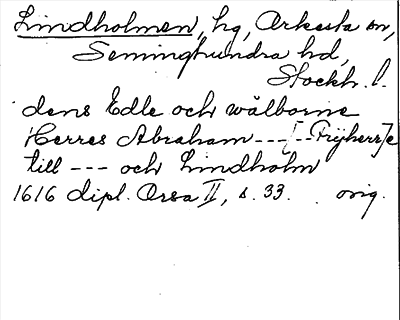 Lindholmen, hg, Orkesta sn,
Seminghundra hd,
Stockh. l.
dens Edle och wälborne
Herres Abraham --- [--- Frijherr]e
till --- och Lindholm
1616 dipl. Orsa II, s. 33. orig.